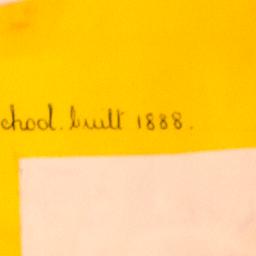 chool. built 1888.